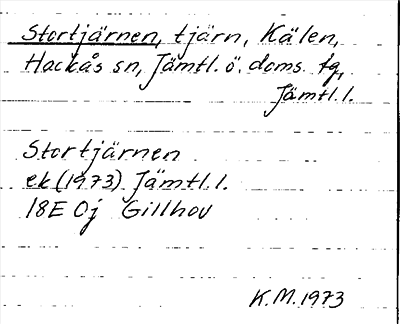 Stortjärnen, tjärn, Kälen,
Hackås sn, Jämtl. ö. doms. tg,
Jämtl. l.
Stortjärnen
ek (1973) Jämtl. l.
18E 0j Gillhov
K.M. 1973